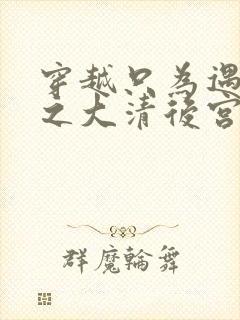 穿越只為遇
之大清後宮
群魔輪舞